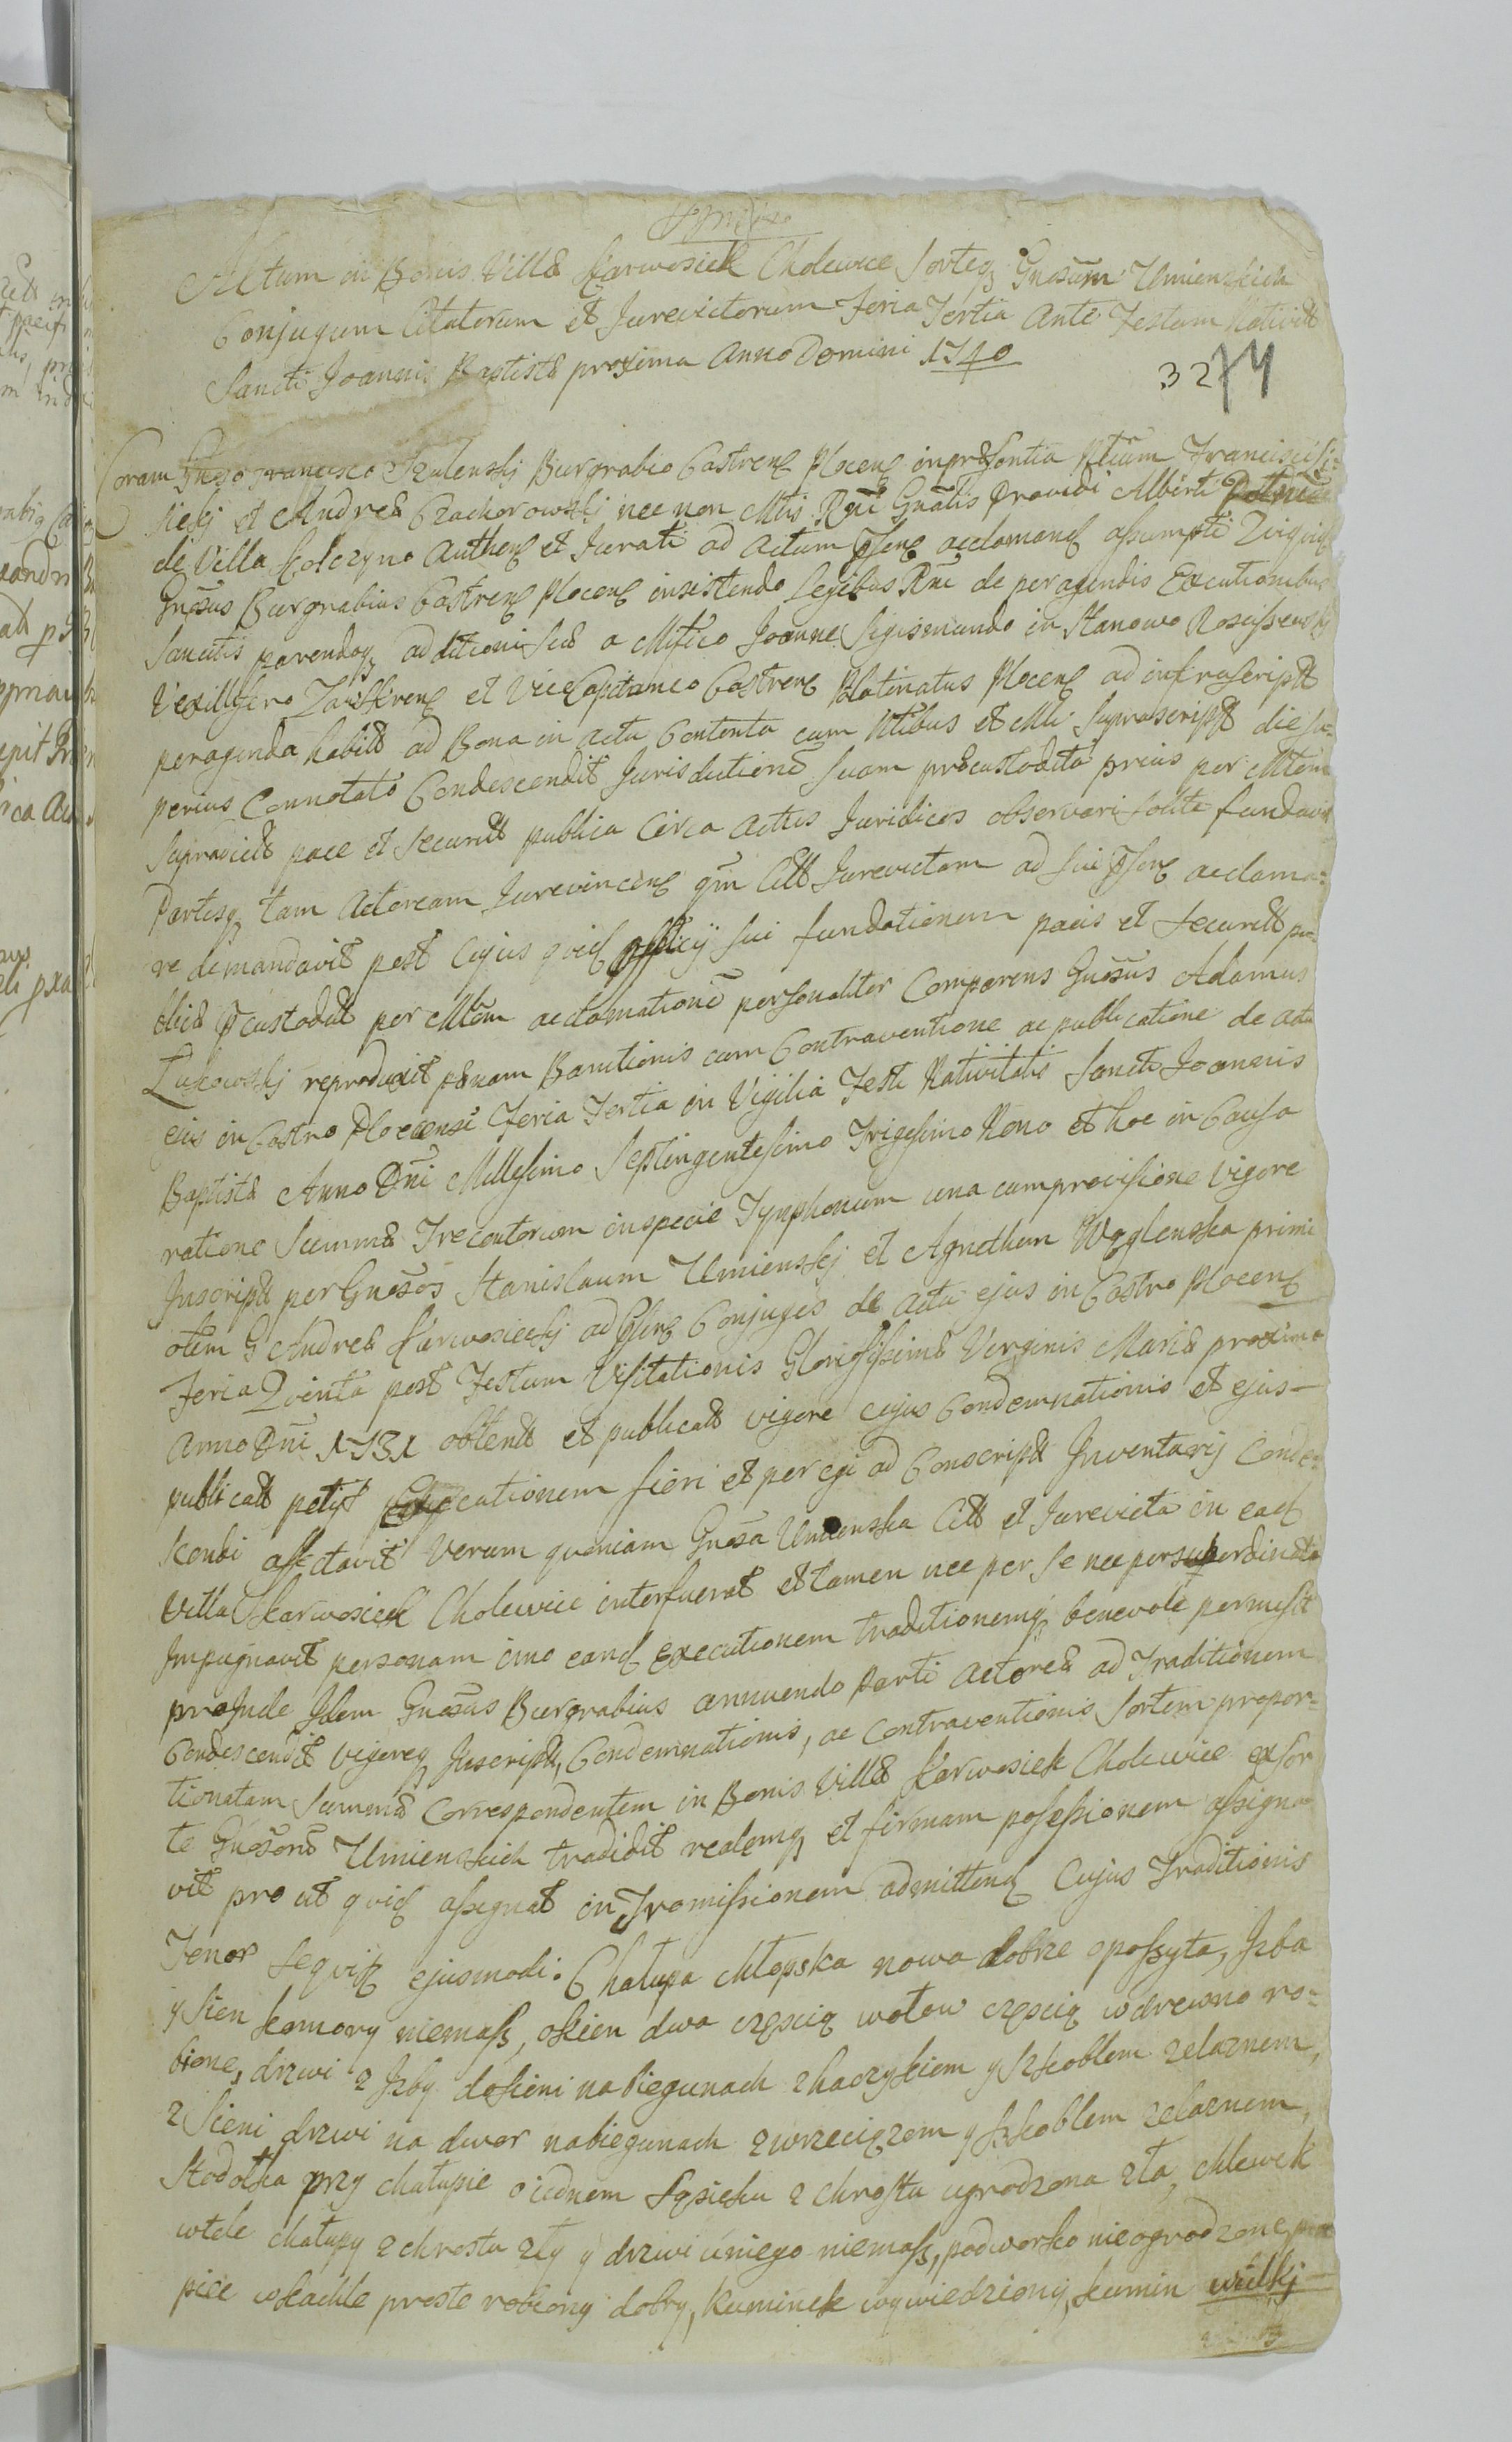 Actum in Bonis Villæ Karwosiek Cholewice sorteq Gnosum Umienskich
Conjugum Citatorum et Jurevictorum Feria Tertia Ante Festum Nativitt
Sancti Joannis Baptistæ proxima Anno Domini 1740
3274
Coram Gnoso Francisco Szulenskj Burgrabio Castrens Plocens in præsentia Ntium Francisci
et Andreæ Czachorowskj nec non Mtis Rni Gnalis Providi Alberti
de Villa Kolczyno Authen et Jurati ad Actum præsens acclamans assumpti
Gnosus Burgrabius Castrens Plocens insistendo Legibus Rni de peragendis Executionibus
Sancitis parendoq additioni Suæ a Mfico Joanne Sigismundo in Stanowo Rosciszewskj
Vexillifero Zawskrens et Vice Capitaneo Castrens Palatinatus Plocens ad infrascriptt
peragenda habitt ad Bona in actu Contenta cum Ntibus et Mli suprascriptt die su-
perius Connotato Condescendit Jurisdictione suam præcustodita prius per Mtem
supradictt pace et Securitt publica Circa Actus Juridicos observari solita fundavit
Partesq tam Actoream Jurevincens qm Citt Jurevictam ad sui præsens acclama-
re demandavit post Cujus qvid officij sui fundationem pacis et Securitt pu-
blicæ præcustodit per Mlem acclamatione personaliter Comparens Gnosus Adamus
Lukowskj reproduxit pænam Banitionis cum Contraventione ac publicatione de actu
eius in Castro Plocensi Feria Tertia in Vigilia Festi Nativitatis Sancti Joannis
Baptistæ Anno Dni Millesimo Septingentesimo Trigesimo Nono et hoc in Causa
ratione Summæ Trecentorum in specie Tymphonum una cum provisione vigore
Inscriptt per Gnosos Stanislaum Umienskj et Agnetham Węglenska primi
olim G Andreæ Karwosieckj ad præsens Conjuges de actu ejus in Castro Plocens
Feria Qvinta post Festum Visitationis Gloriosissimæ Virginis Mariæ proxima
Anno Dni 1731 obtentt et publicatt vigore cujus Condemnationis et ejus
publicatt petijt Executionem fieri et peragi ad Conscriptt Inventarij Conde-
scendi affectavit Verum quoniam Gnosa Umienska Citt et Jurevicta in ead
Villa Karwosiek Cholewice interfuerat et tamen nec per se nec per subordinata
Impugnavit personam imo eand Executionem traditionemq benevole permisit
proinde Idem Gnosus Burgrabius annuendo Parti Actoreæ ad Traditionem
Condescendit vigoreq Inscriptt, Condemnationis, ac Contraventionis Sortem propor-
tionatam Summæ Correspondentem in Bonis Villæ Karwosiek Cholewice ex sor
te Gnosore Umienskich tradidit realemq et firmam possessionem assigna
vit pro ut qvid assignat in Tromissionem admittens Cujus Traditionis
Tenor seqvit ejusmodi. Chałupa chłopska nowa dobrze poszyta, Izba
y sien komory niemasz, okien dwa częscią wołow częscią wdrewno ro-
bione, drzwi z Izby dosieni na biegunach z haczykiem y szkoblem zelaznem,
z Sieni drzwi na dwor nabiegunach zwrzeciązem y szkoblem zelaznem,
Stodołka przy chałupie o iednem Sąsieku z chrostu ugrodzona zła, chlewek
wtele chałupy z chrostu zły y drzwi uniego niemasz, podworko nieogrodzone,
piec wkachle proste robiony dobry, kuminek wywiedziony, kumin wielkj